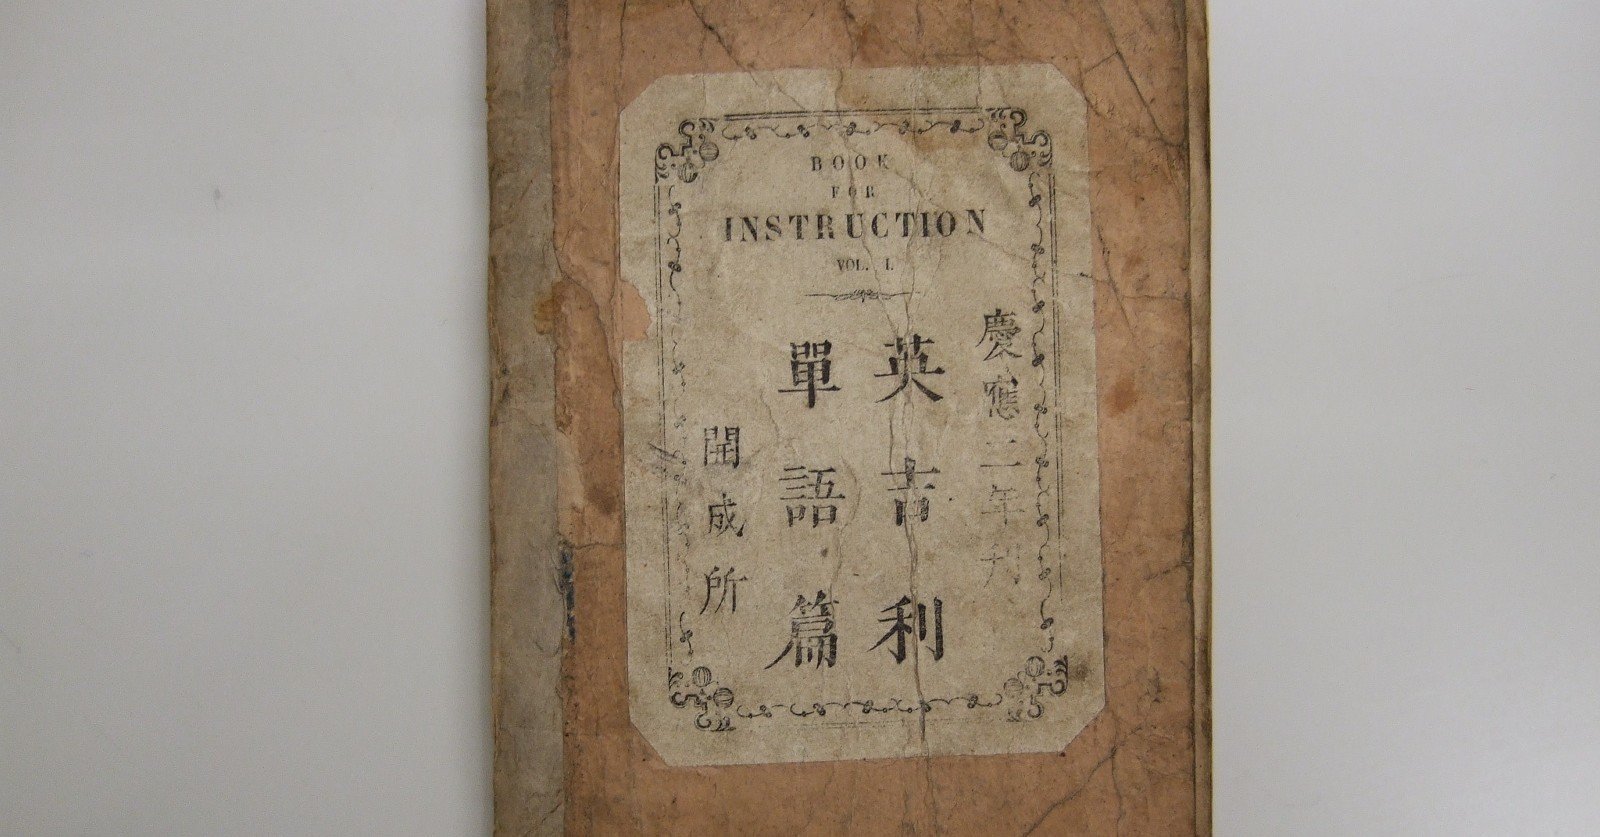 BOOK
FOR
INSTRUCTION
VOL. I.
慶應二年刊
英吉利
單語篇
開成所